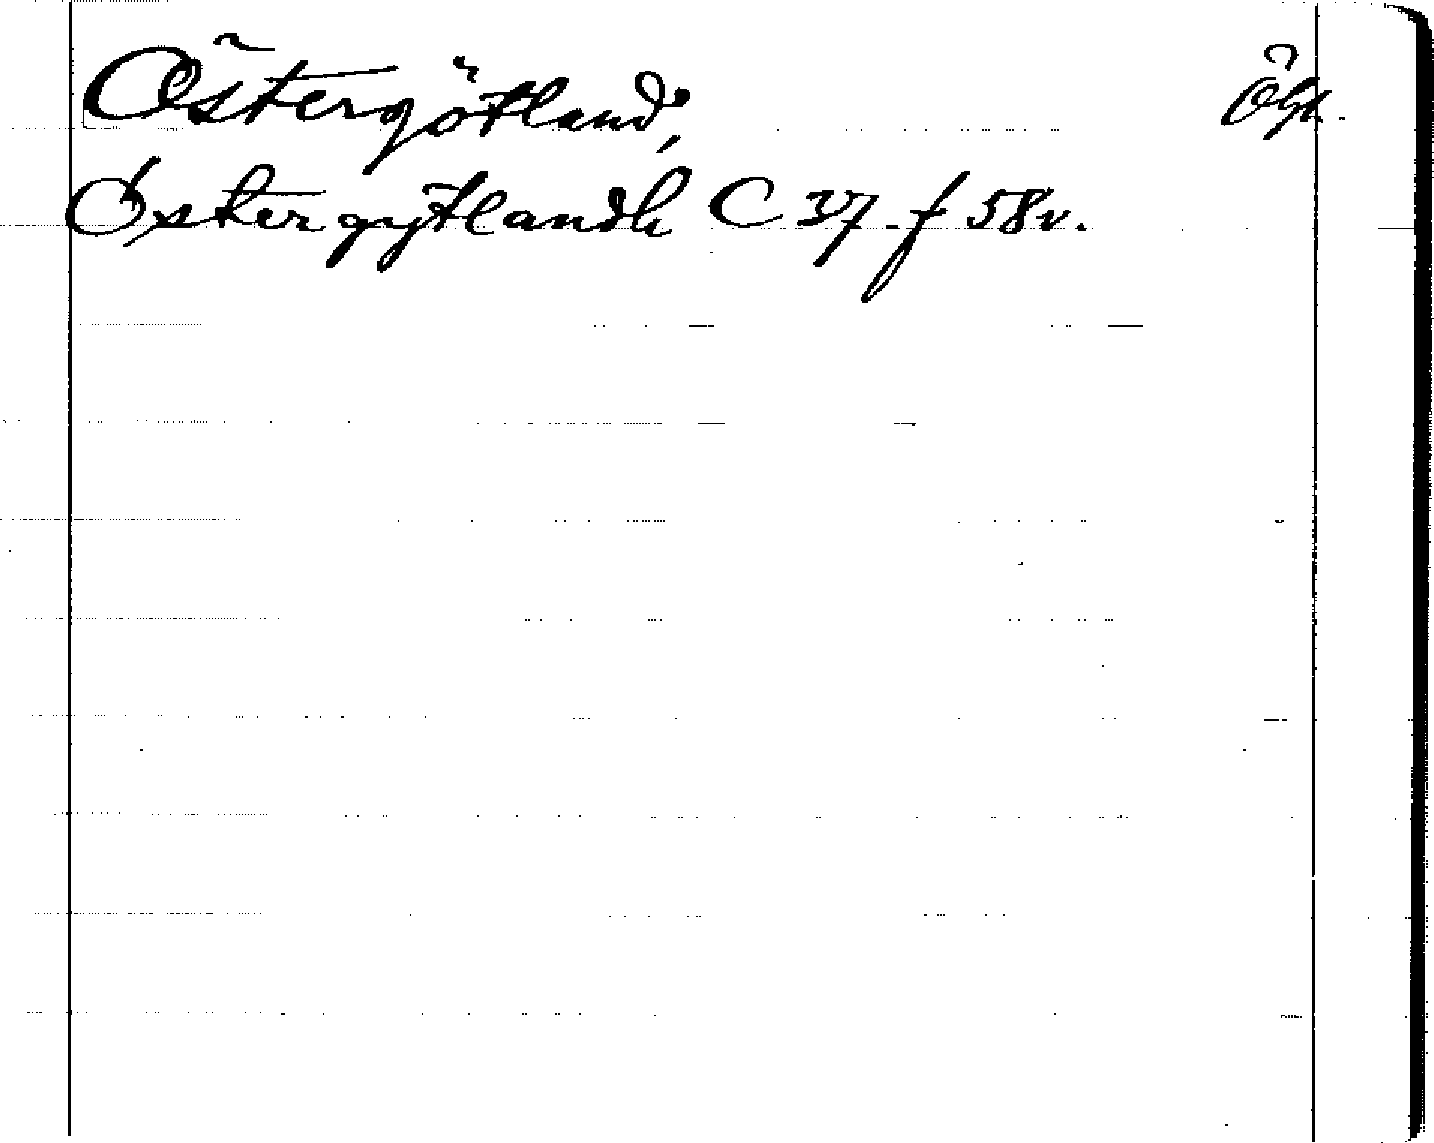 Östergötland, Ögl.
Østergytlandh C 37 f 58v.